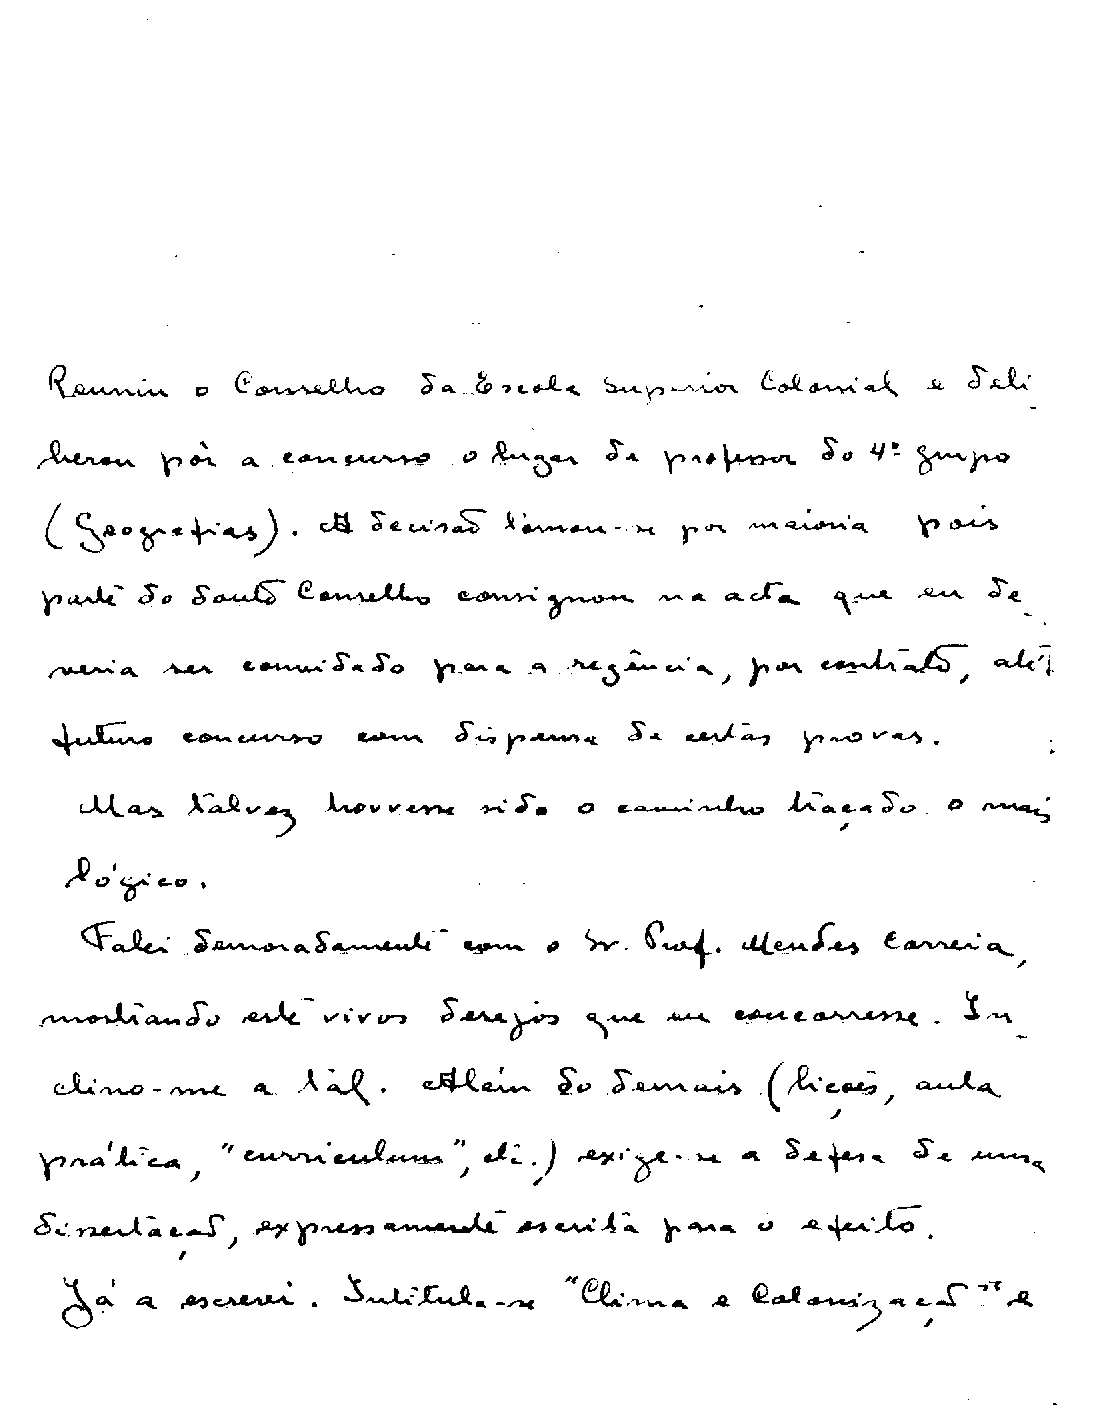 Reuniu o Conselho da Escola Superior Colonial e deli-
berou pôr a concurso o lugar de professor do 4º grupo
(Geografias). A decisão tomou-se por maioria pois
parte do douto Conselho consignou na acta que eu de-
veria ser convidado para a regência, por contrato, até
futuro concurso com dispensa de certas provas.
Mas talvez houvesse sido o caminho traçado o mais
lógico.
Falei demoradamente com o Sr. Prof. Mendes Correia,
mostrando este vivos desejos que eu concorresse. In-
clino-me a tal. Além do demais (lições, aula
prática, "curriculum", etc.) exige-se a defesa de uma
dissertação, expressamente escrita para o efeito.
Já a escrevi. Intitula-se "Clima e Colonização" e